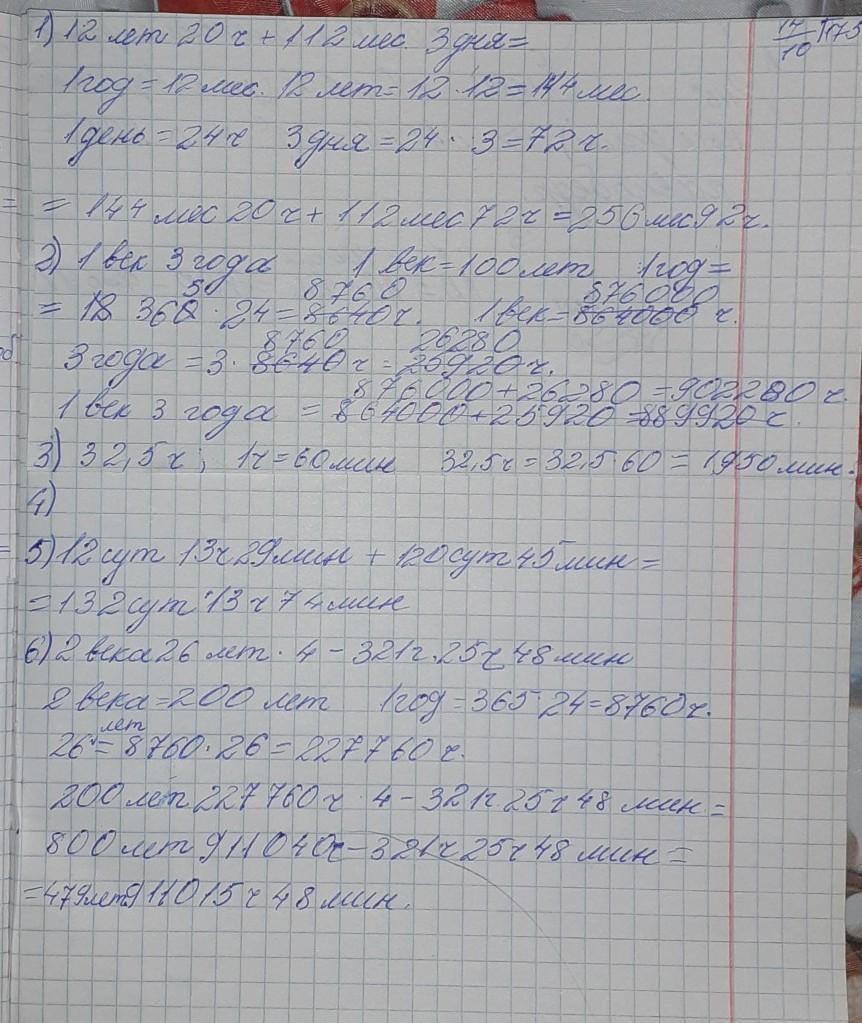 1) 12 лет 20 ч + 112 мес. 3 дня =
17/10 175
1 год = 12 мес. 12 лет = 12 · 12 = 144 мес.
1 день = 24 ч 3 дня = 24 · 3 = 72 ч.
= 144 мес 20 ч + 112 мес 72 ч = 256 мес 92 ч.
2) 1 век 3 года 1 век = 100 лет 1 год =
5 8760 876000
= 18 360 · 24 = 8640 ч. 1 век = 864000 ч.
8760 26280
3 года = 3 · 8640 ч = 25920 ч.
876000 + 26280 = 902280 ч.
1 век 3 года = 864000 + 25920 = 889920 ч.
3) 32,5 ч; 1 ч = 60 мин 32,5 ч = 32,5 · 60 = 1950 мин.
4)
5) 12 сут 13 ч 29 мин + 120 сут 45 мин =
= 132 сут 13 ч 74 мин
6) 2 века 26 лет · 4 - 321 г. 25 ч 48 мин
2 века = 200 лет 1 год = 365 · 24 = 8760 ч.
лет
26 = 8760 · 26 = 227760 ч.
200 лет 227760 ч · 4 - 321 г. 25 ч 48 мин =
800 лет 911040 ч - 321 г 25 ч 48 мин =
= 479 лет 911015 ч 48 мин.